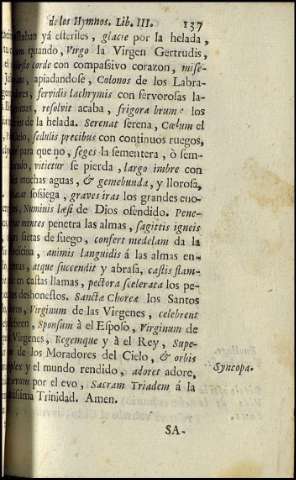 de los Hymnos. Lib. III. 137
yá esteriles, glacie por la helada,
orando, Virgo la Virgen Gertrudis,
corde con compassivo corazon, mise-
apiadandose, Colonos de los Labra-
fervidis lachrymis con fervorosas la-
resolvit acaba, frigora brumæ los
de la helada. Serenat serena, Cœlum el
sedulis precibus con continuos ruegos,
para que no, seges la sementera, ò sem-
vitietur se pierda, largo imbre con
muchas aguas, & gemebunda, y llorosa,
sossiega, graves iras los grandes eno-
Numinis læsi de Dios ofendido. Pene-
mentes penetra las almas, sagittis igneis
saetas de fuego, confert medelam da la
animis languidis á las almas en-
atque succendit y abrasa, castis flam-
en castas llamas, pectora scelerata los pe-
deshonestos. Sanctæ Choreæ los Santos
Virginum de las Virgenes, celebrent
Sponsum à el Esposo, Virginum de
Virgenes, Regemque y à el Rey, Supe-
de los Moradores del Cielo, & orbis
y el mundo rendido, adoret adore, Syncopa.
por el evo, Sacram Triadem á la
Trinidad. Amen.
SA-